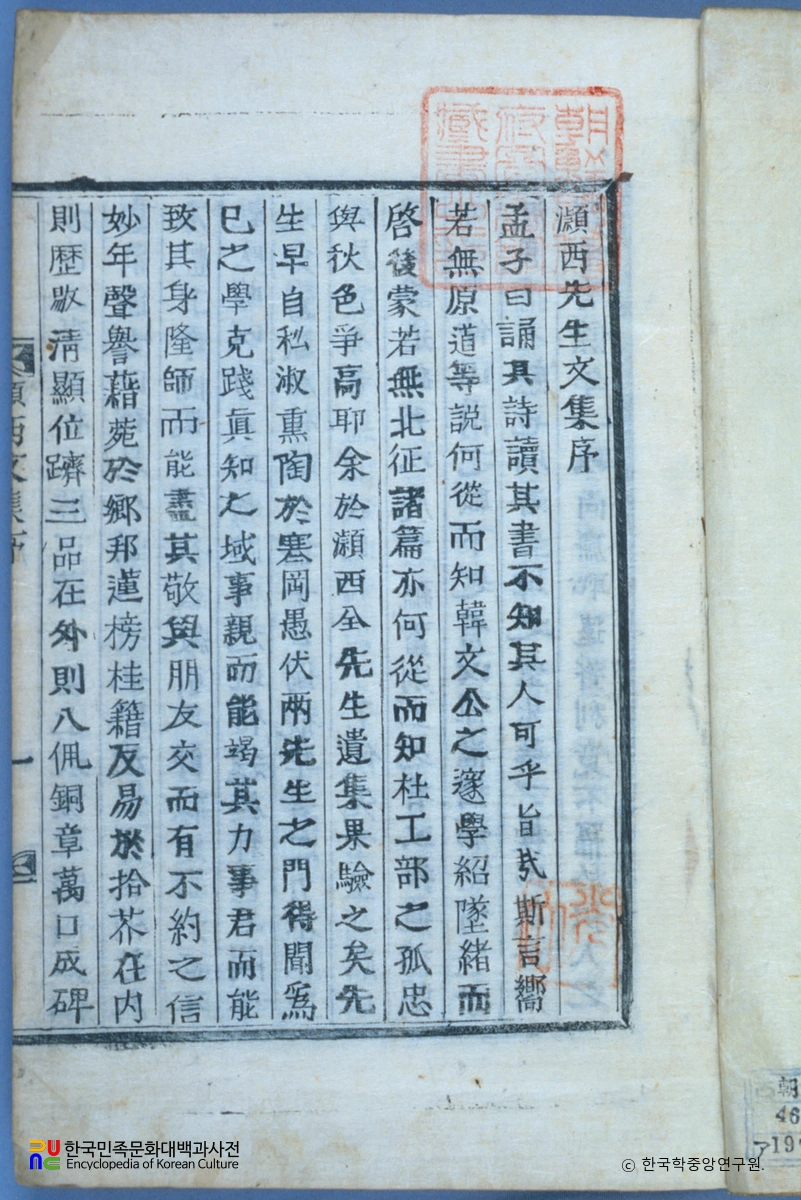 灝西先生文集序
孟子曰誦其詩讀其書不知其人可乎旨哉斯言嚮
若無原道等説何從而知韓文公之邃學紹墜緖而
啓後蒙若無北征諸篇亦何從而知杜工部之孤忠
與秋色爭高耶余於灝西全先生遺集果驗之矣先
生早自私淑熏陶於寒岡愚伏兩先生之門得聞爲
已之學克踐眞知之域事親而能竭其力事君而能
致其身隆師而能盡其敬與朋友交而有不約之信
妙年聲譽藉菀於鄉邦蓮榜桂籍反易於拾芥在內
則歷敭淸顯位躋三品在外則八佩銅章萬口成碑
朝
46
19
한국민족문화대백과사전
Encyclopedia of Korean Culture
© 한국학중앙연구원.